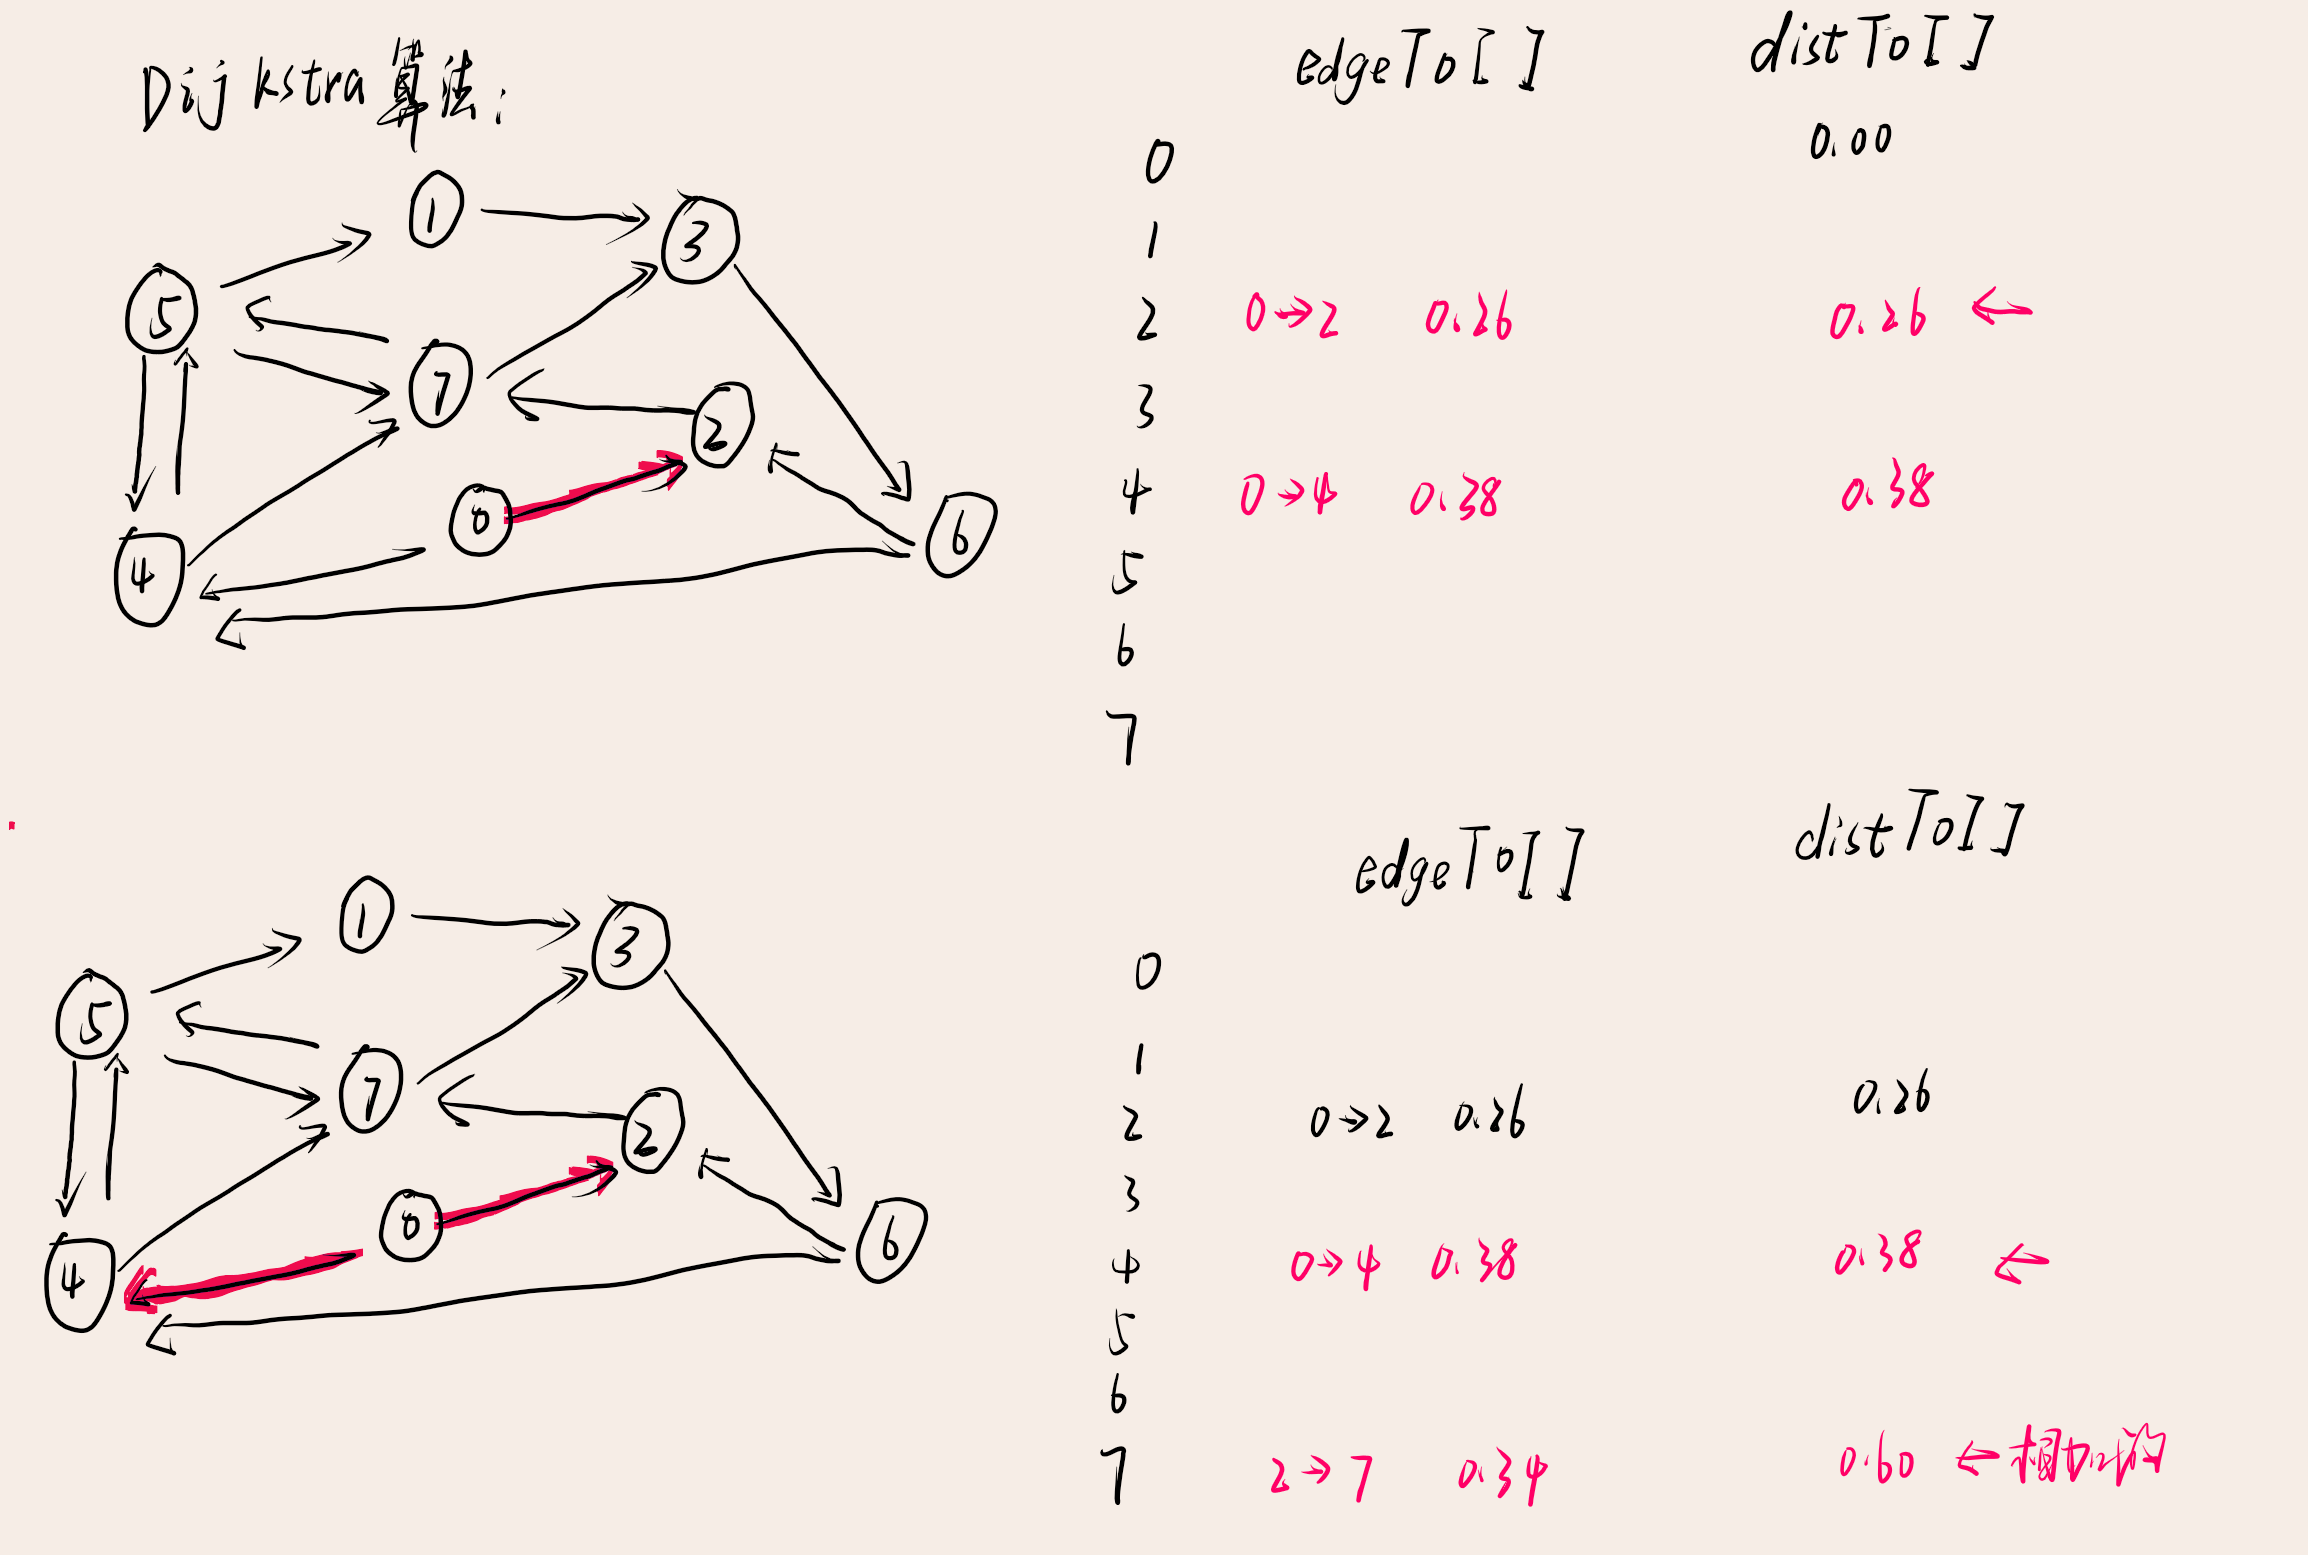 Dijkstra算法:
1
3
5
7
2
0
6
4
edgeTo[] distTo[]
0 0.00
1
2 0→2 0.26 0.26 ←
3
4 0→4 0.38 0.38
5
6
7
1
3
5
7
2
0
6
4
edgeTo[] distTo[]
0
1
2 0→2 0.26 0.26
3
4 0→4 0.38 0.38 ←
5
6
7 2→7 0.34 0.60 ←